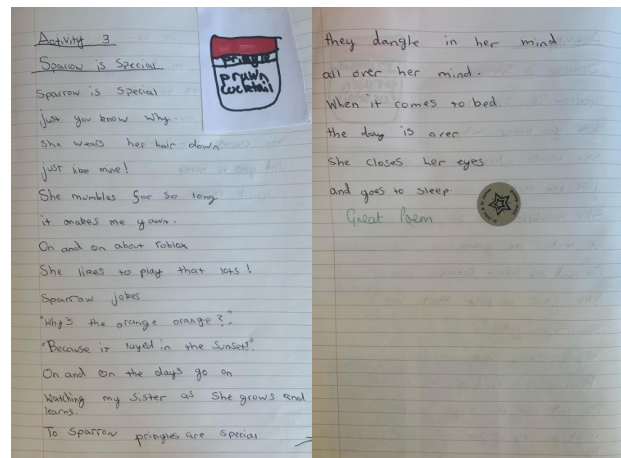 Activity 3
Sparow is Special
pringle
prawn
cocktail
Sparrow is Special
just you know why
She wears her hair down
just like mine!
She mumbles for so long
it makes me yawn.
On and on about roblox
She likes to play that lots!
Sparrow jokes
"Why's the orange orange?"
"Because it layed in the sunset!"
On and on the days go on
Watching my sister as She grows and
learns.
To Sparrow pringles are special
they dangle in her mind
all over her mind.
When it comes to bed
the day is over
She closes her eyes
and goes to sleep.
Great Poem